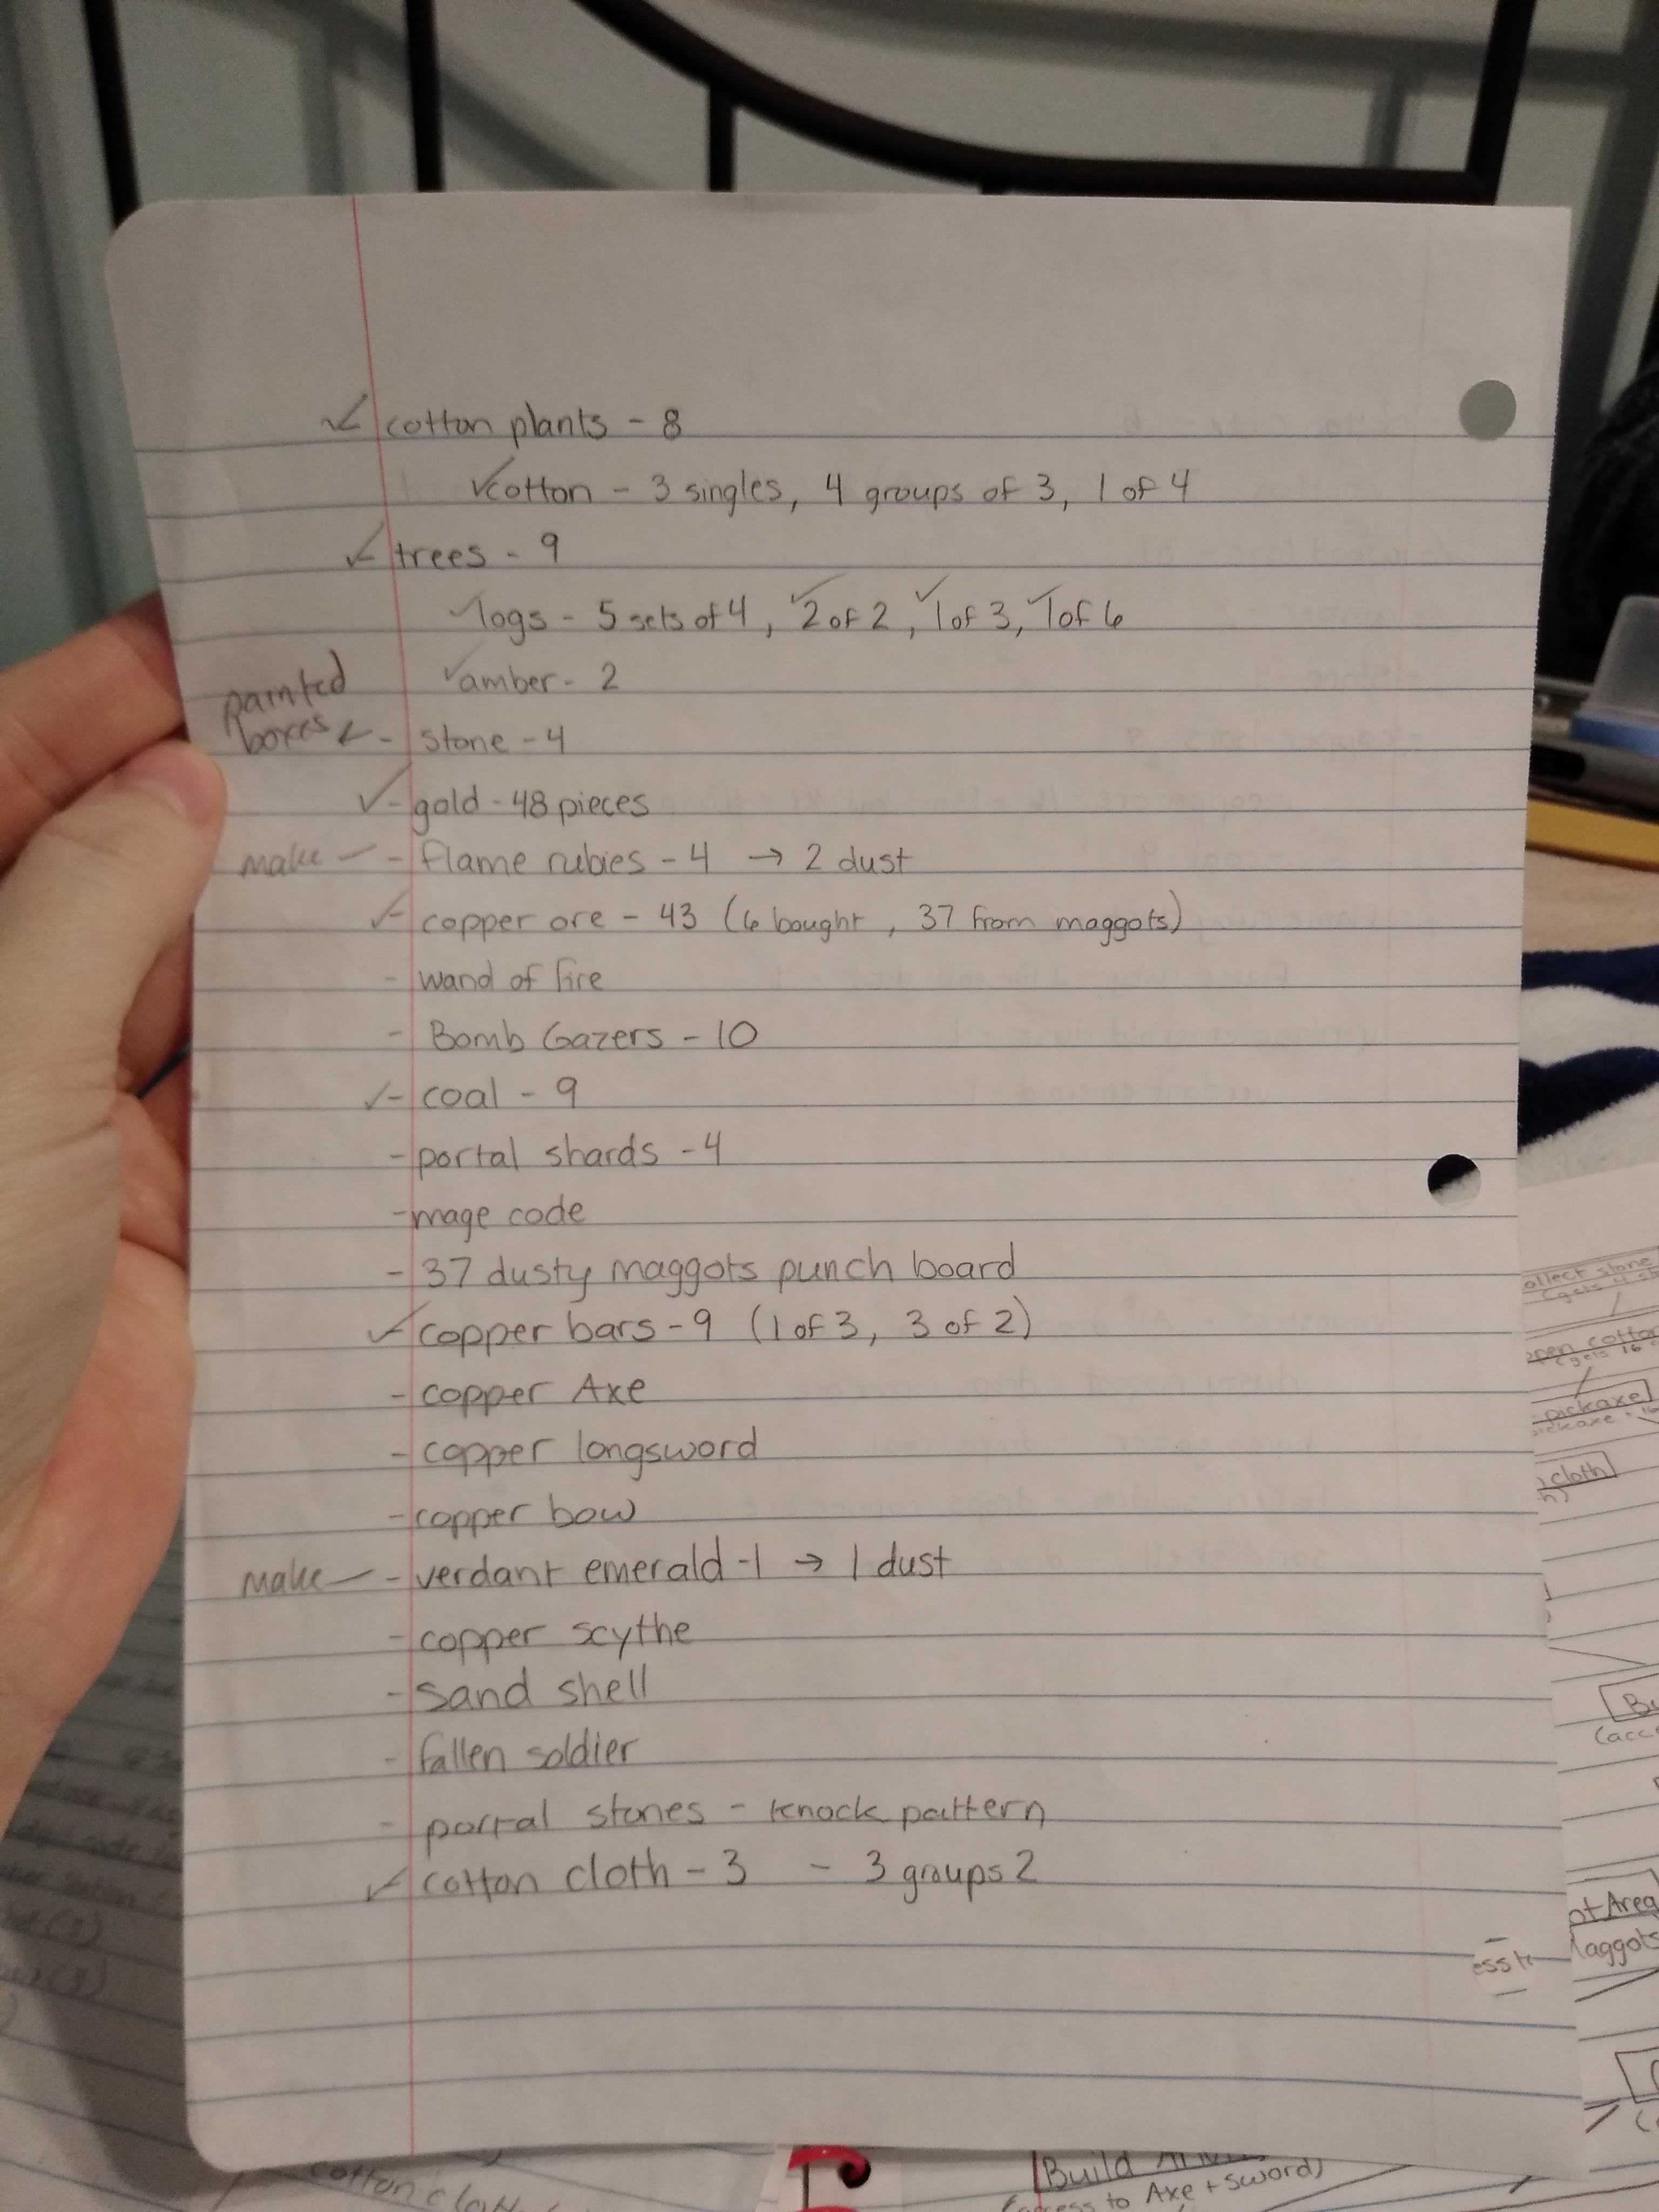 ✓ cotton plants - 8
✓ cotton - 3 singles, 4 groups of 3, 1 of 4
✓ trees - 9
✓ logs - 5 sets of 4, ✓ 2 of 2, ✓ 1 of 3, ✓ 1 of 6
✓ amber - 2
painted boxes ← - stone - 4
✓ - gold - 48 pieces
make — - flame rubies - 4 → 2 dust
✓ - copper ore - 43 (6 bought, 37 from maggots)
- wand of fire
- Bomb Gazers - 10
✓ - coal - 9
- portal shards - 4
- mage code
- 37 dusty maggots punch board
✓ copper bars - 9 (1 of 3, 3 of 2)
- copper Axe
- copper longsword
- copper bow
make — - verdant emerald - 1 → 1 dust
- copper scythe
- sand shell
- fallen soldier
- portal stones - knock pattern
✓ cotton cloth - 3 - 3 groups 2
ollect stone
open cotton
pickaxe
cloth
(acc
ot Area
Maggots
ess to
cotton clot
Build
(access to Axe + Sword)